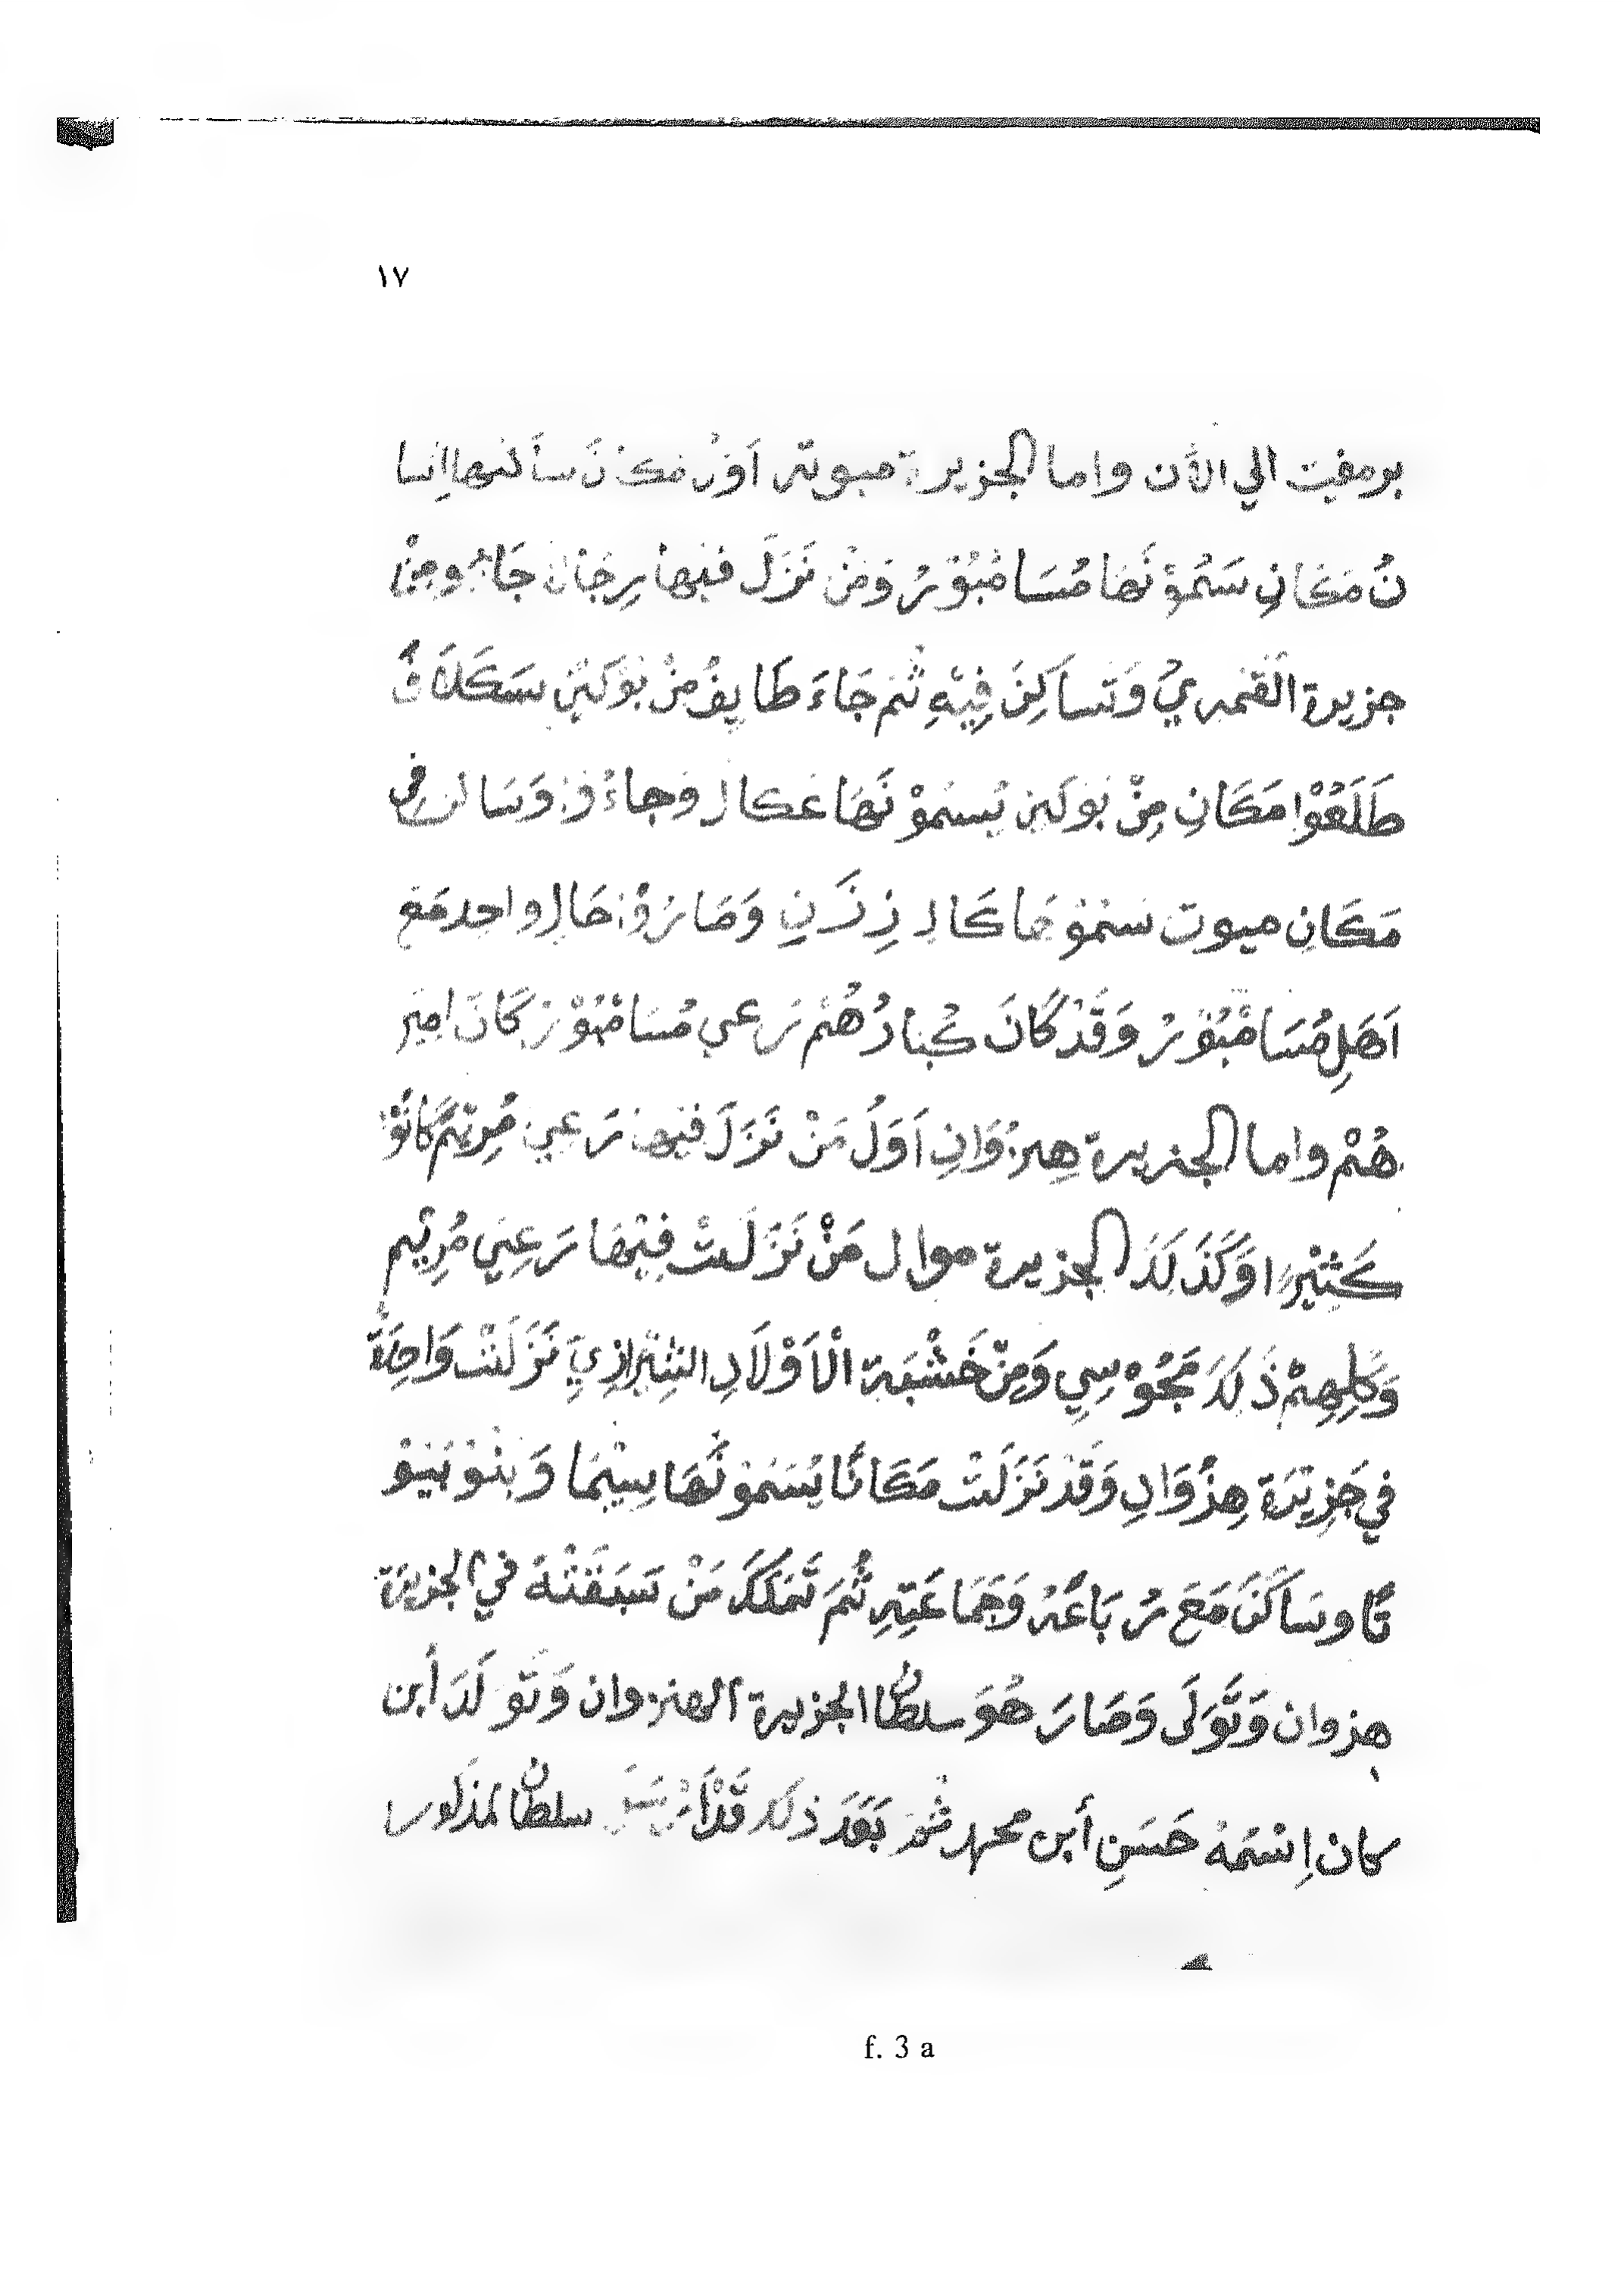 ١٧
برمفيت الي الأن واما الجزيرة ميوته اَوَلُ مَكَانَ سأكنها اِنسا
نُ مَكَانِ سَمُوْنَهَا مُسَامْبُوْرُ وَمَنْ نَزَلَ فيها رِجَالٌ جَاءُو مِنْ
جزيرة القَمْريُ وَتَساَكِنَ فِيْهِ ثُم جَاءَ طَايِفُ مِنْ بُوْكِيْنِ سَكَلَافُ
طَلَعُوْا مَكَانِ مِنْ بُوكِيْنِ يُسمُوْنَهَا عَكال وجاءُو وَسَاكن في
مَكَانِ ميوت سَمُوْهَا كَالِ وَصَارُوْا حَالِ واحِد مَعَ
اَهَلِ مُسَامْبُوْرُ وَقَدْ كَانَ كُبارُهُمْ رَعي مُسَامْبُوْرُ كَانَ اميْرَ
هُمْ واما الجزيرة هِنزُوَانِ اَوَلُ مَنْ نَزَلَ فيها رَعي مُرِيْمُ كَانُوْا
كَثِيْرًا وَّكَذَلِكَ الجزيرة موال مَنْ نَزَلَتْ فِيْهَا رَعِي مُرِيْم
وَكلِهِمْ ذَلِكَ مَجُوْسِي وَمِنْ خَشْبَة الْاَوْلَادِ الشِيْرَازِيِ نَزَلَتْ وَاحِدَةً
في جَزِيْرَة هِنزُوَانِ وَقَدْ نَزَلَتْ مَكَانًا يُسَمُوْنَهَا سِيْمَا وَبنَوْ بَيْو
تًا وسَاكَنَ مَعَ رُبَاعَهُ وَجَمَاعَتِهِ ثُمَ تَمَلَكَ مَنْ سَبَقَتْهُ في الجزيرة
هنزوان وَتَّوَلَى وَصَارَ هُوَ سلطان الجزيرة الهنزوان وَتَّوَلَدَ أبن
كان اِسْمَهُ حَسَنِ أبن محمد ثم بَعَدَ ذلك سلطان المذكور
f. 3 a